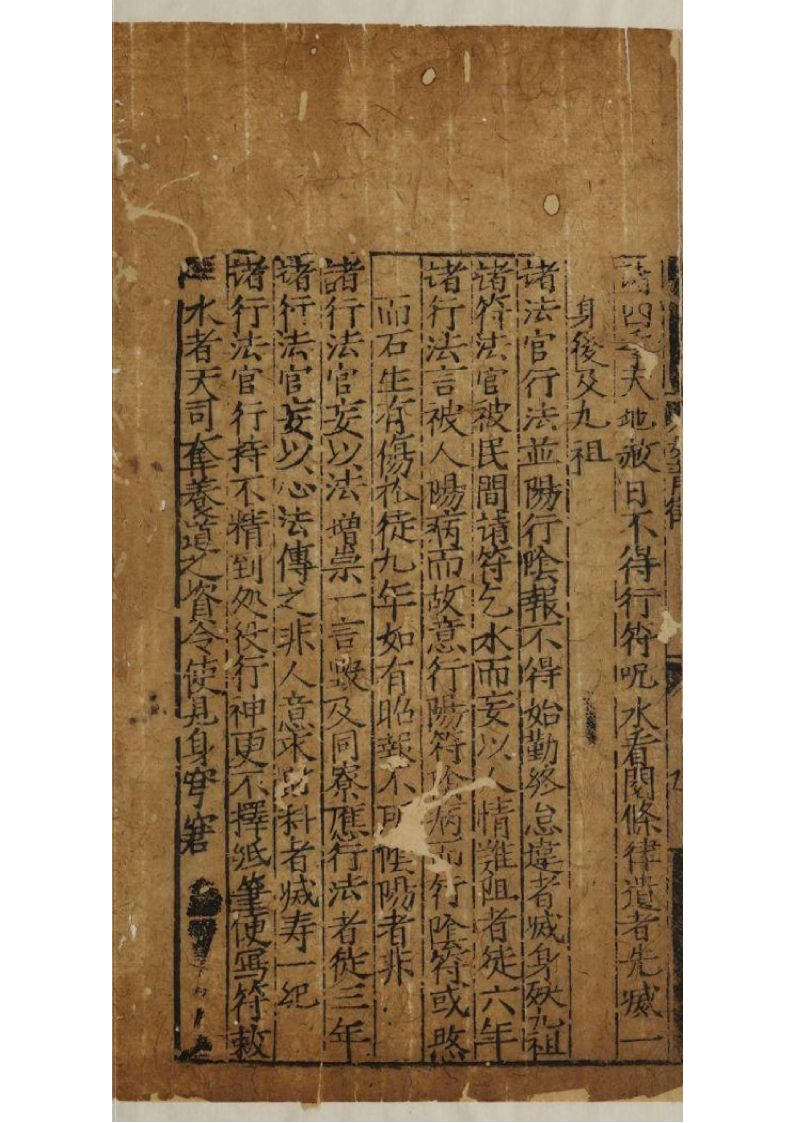 諸四季天地赦日不得行符呪水看閱條律違者先滅一
身後及九祖
諸法官行法並陽行陰報不得始勤終怠違者滅身殃九祖
諸符法官被民間請符乞水而妄以人情難阻者徒六年
諸行法言被人陽病而故意行陽符陰病而行陰符或煞
而石生有傷於徒九年如有昭報不明陰陽者非
諸行法官妄以法增祟一言毀及同寮應行法者徒三年
诸行法官妄以心法傳之非人意求財料者减寿一紀
诸行法官行持不精到処役行神更不擇紙筆便寫符敕
水者天司奪養道之資令使見身穷窘